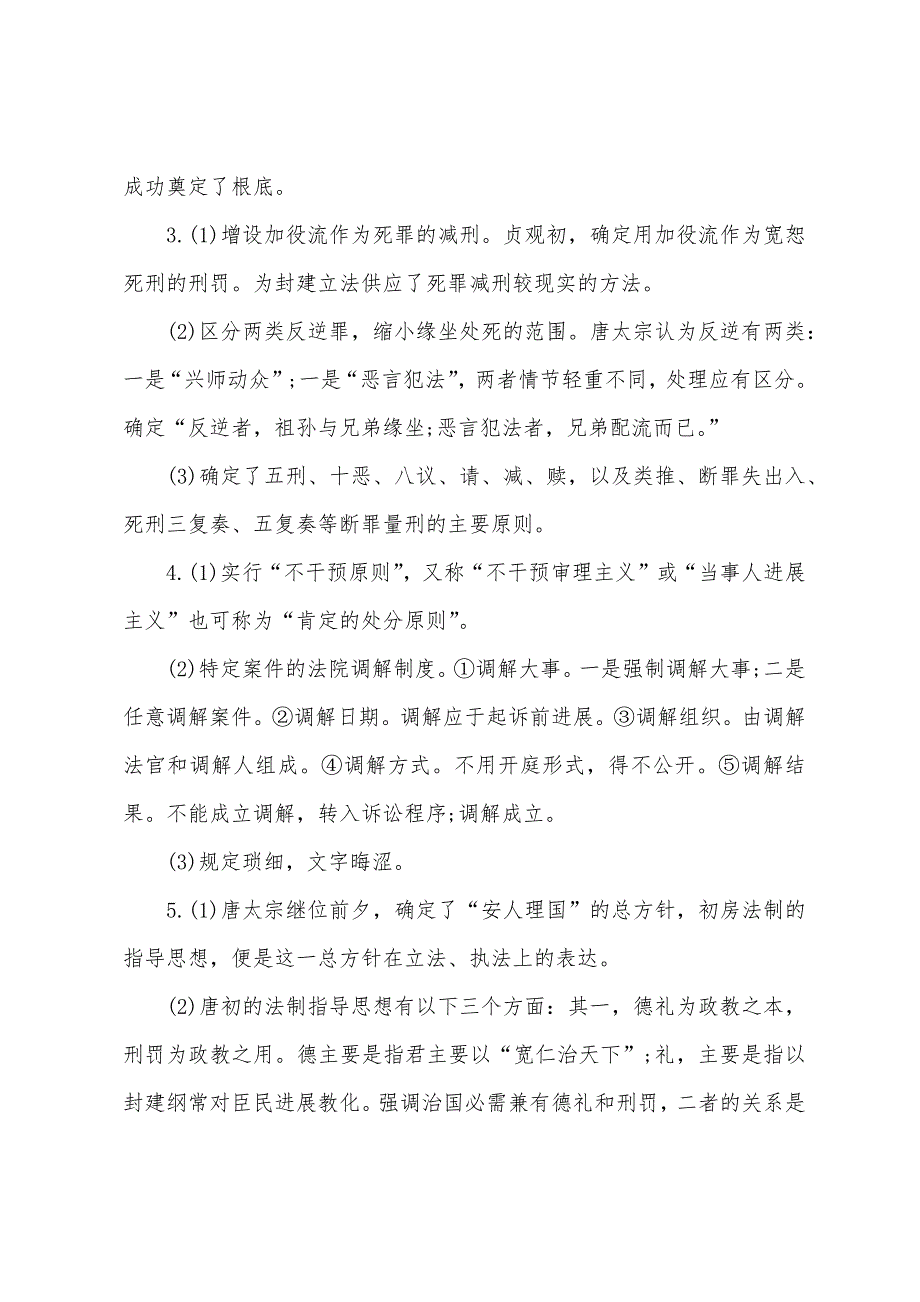 成功奠定了根底。
3.(1)增设加役流作为死罪的减刑。贞观初，确定用加役流作为宽恕
死刑的刑罚。为封建立法供应了死罪减刑较现实的方法。
(2)区分两类反逆罪，缩小缘坐处死的范围。唐太宗认为反逆有两类：
一是“兴师动众”;一是“恶言犯法”，两者情节轻重不同，处理应有区分。
确定“反逆者，祖孙与兄弟缘坐;恶言犯法者，兄弟配流而已。”
(3)确定了五刑、十恶、八议、请、减、赎，以及类推、断罪失出入、
死刑三复奏、五复奏等断罪量刑的主要原则。
4.(1)实行“不干预原则”，又称“不干预审理主义”或“当事人进展
主义”也可称为“肯定的处分原则”。
(2)特定案件的法院调解制度。①调解大事。一是强制调解大事;二是
任意调解案件。②调解日期。调解应于起诉前进展。③调解组织。由调解
法官和调解人组成。④调解方式。不用开庭形式，得不公开。⑤调解结
果。不能成立调解，转入诉讼程序;调解成立。
(3)规定琐细，文字晦涩。
5.(1)唐太宗继位前夕，确定了“安人理国”的总方针，初房法制的
指导思想，便是这一总方针在立法、执法上的表达。
(2)唐初的法制指导思想有以下三个方面：其一，德礼为政教之本，
刑罚为政教之用。德主要是指君主要以“宽仁治天下”;礼，主要是指以
封建纲常对臣民进展教化。强调治国必需兼有德礼和刑罚，二者的关系是